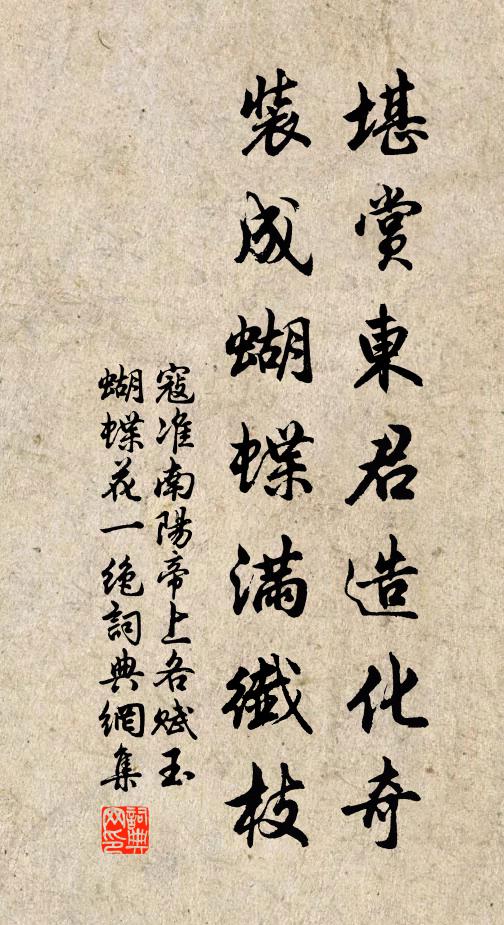 堪賞東君造化奇
裝成蝴蝶滿纖枝
寇准南陽帝上各賦玉
蝴蝶花一絶詞典網集
詞典
网印